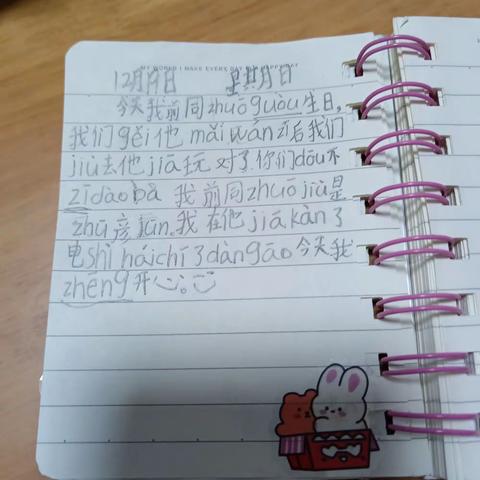 MY WORLD I MAKE EVERY DAY
12月19日 星其月日
今天我前同zhuō guòu生日,
我们gěi他 mǎi wán 后我们
jiù去他jiā玩 对了你们dōu不
zīdào bā 我前同zhuō jiù是
zhū彦jūn.我在他jiā kàn了
电shì hái chī了dàn gāo今天我
zhēng开心。